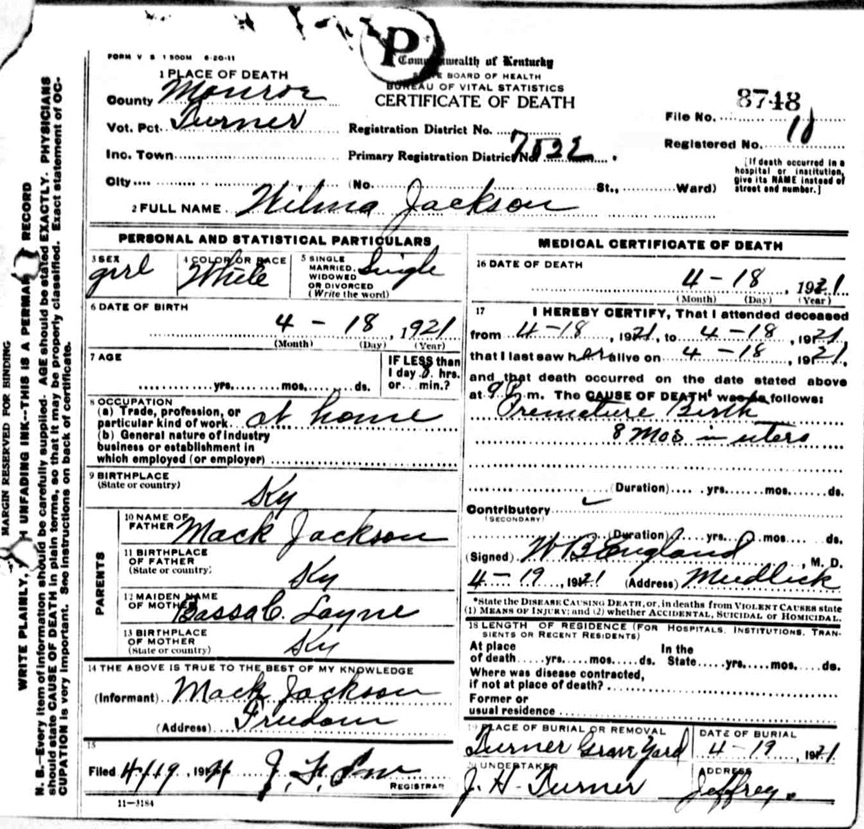 FORM V S 1 500M 6-20-11
P
Commonwealth of Kentucky
STATE BOARD OF HEALTH
BUREAU OF VITAL STATISTICS
CERTIFICATE OF DEATH
1 PLACE OF DEATH
County Monroe
Vot. Pct. Turner
Inc. Town
City
Registration District No.
Primary Registration District No. 7522
(No. St., Ward)
8748
File No.
Registered No. 11
[If death occurred in a
hospital or institution,
give its NAME instead of
street and number.]
2 FULL NAME Wilma Jackson
PERSONAL AND STATISTICAL PARTICULARS
3 SEX girl
4 COLOR OR RACE White
5 SINGLE
MARRIED,
WIDOWED
OR DIVORCED
(Write the word) Single
6 DATE OF BIRTH
4 - 18, 1921
(Month) (Day) (Year)
7 AGE
yrs. mos. ds.
IF LESS than
1 day 8 hrs.
or min.?
8 OCCUPATION
(a) Trade, profession, or
particular kind of work at home
(b) General nature of industry
business or establishment in
which employed (or employer)
9 BIRTHPLACE
(State or country) Ky
PARENTS
10 NAME OF
FATHER Mack Jackson
11 BIRTHPLACE
OF FATHER
(State or country) Ky
12 MAIDEN NAME
OF MOTHER C. Layne
13 BIRTHPLACE
OF MOTHER
(State or country) Ky
14 THE ABOVE IS TRUE TO THE BEST OF MY KNOWLEDGE
(Informant) Mack Jackson
(Address) Freedom
15
Filed 4/19 1921 J. H.
REGISTRAR
11-3184
MEDICAL CERTIFICATE OF DEATH
16 DATE OF DEATH
4 - 18, 1921
(Month) (Day) (Year)
17 I HEREBY CERTIFY, That I attended deceased
from 4-18, 1921, to 4-18, 1921
that I last saw her alive on 4-18, 1921,
and that death occurred on the date stated above
at 9 P. m. The CAUSE OF DEATH* was as follows:
Premature Birth
8 Mos in utero
(Duration) yrs. mos. ds.
Contributory
(SECONDARY)
(Duration) yrs. mos. ds.
(Signed) W B England, M. D.
4-19 1921 (Address) Mudlick
*State the DISEASE CAUSING DEATH, or, in deaths from VIOLENT CAUSES state
(1) MEANS OF INJURY; and (2) whether ACCIDENTAL, SUICIDAL or HOMICIDAL.
18 LENGTH OF RESIDENCE (FOR HOSPITALS, INSTITUTIONS, TRAN-
SIENTS OR RECENT RESIDENTS)
At place In the
of death yrs. mos. ds. State yrs. mos. ds.
Where was disease contracted,
if not at place of death?
Former or
usual residence
19 PLACE OF BURIAL OR REMOVAL
Turner Grave Yard
DATE OF BURIAL
4-19, 1921
20 UNDERTAKER
J. H. Turner
ADDRESS
Jeffrey.
MARGIN RESERVED FOR BINDING
WRITE PLAINLY, UNFADING INK--THIS IS A PERMANENT RECORD
N. B.--Every item of information should be carefully supplied. AGE should be stated EXACTLY. PHYSICIANS
should state CAUSE OF DEATH in plain terms, so that it may be properly classified. Exact statement of OC-
CUPATION is very important. See instructions on back of certificate.